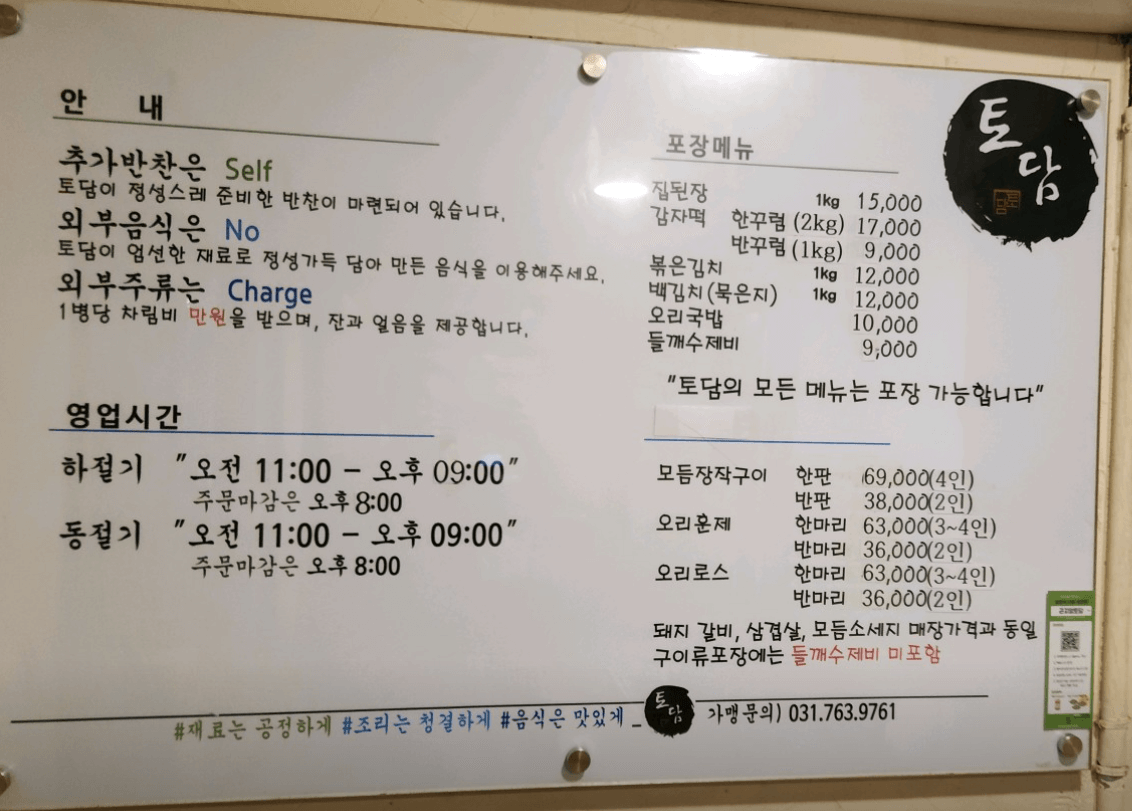 안 내
추가반찬은 Self
토담이 정성스레 준비한 반찬이 마련되어 있습니다.
외부음식은 No
토담이 엄선한 재료로 정성가득 담아 만든 음식을 이용해주세요.
외부주류는 Charge
1병당 차림비 만원을 받으며, 잔과 얼음을 제공합니다.
영업시간
하절기 "오전 11:00 - 오후 09:00"
주문마감은 오후 8:00
동절기 "오전 11:00 - 오후 09:00"
주문마감은 오후 8:00
토담
토담
포장메뉴
집된장 1kg 15,000
감자떡 한꾸럼 (2kg) 17,000
반꾸럼 (1kg) 9,000
볶은김치 1kg 12,000
백김치(묵은지) 1kg 12,000
오리국밥 10,000
들깨수제비 9,000
"토담의 모든 메뉴는 포장 가능합니다"
모듬장작구이 한판 69,000(4인)
반판 38,000(2인)
오리훈제 한마리 63,000(3~4인)
반마리 36,000(2인)
오리로스 한마리 63,000(3~4인)
반마리 36,000(2인)
돼지 갈비, 삼겹살, 모듬소세지 매장가격과 동일
구이류포장에는 들깨수제비 미포함
#재료는 공정하게 #조리는 청결하게 #음식은 맛있게 _ 토담 가맹문의) 031.763.9761